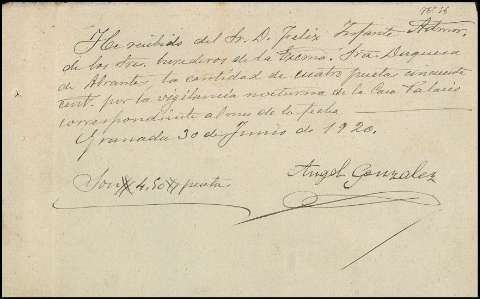 He recibido del Sr. D. Felix Infante Admor.
de los Sres. herederos de la Excma. Sra Duquesa
de Abrantes, la cantidad de cuatro pesetas cincuenta
cent. por la vigilancia nocturna de la Casa Palacio
correspondiente al mes de la fecha
Granada 30 de Junio de 1920.
Son # 4,50 # pesetas
Angel Gonzalez